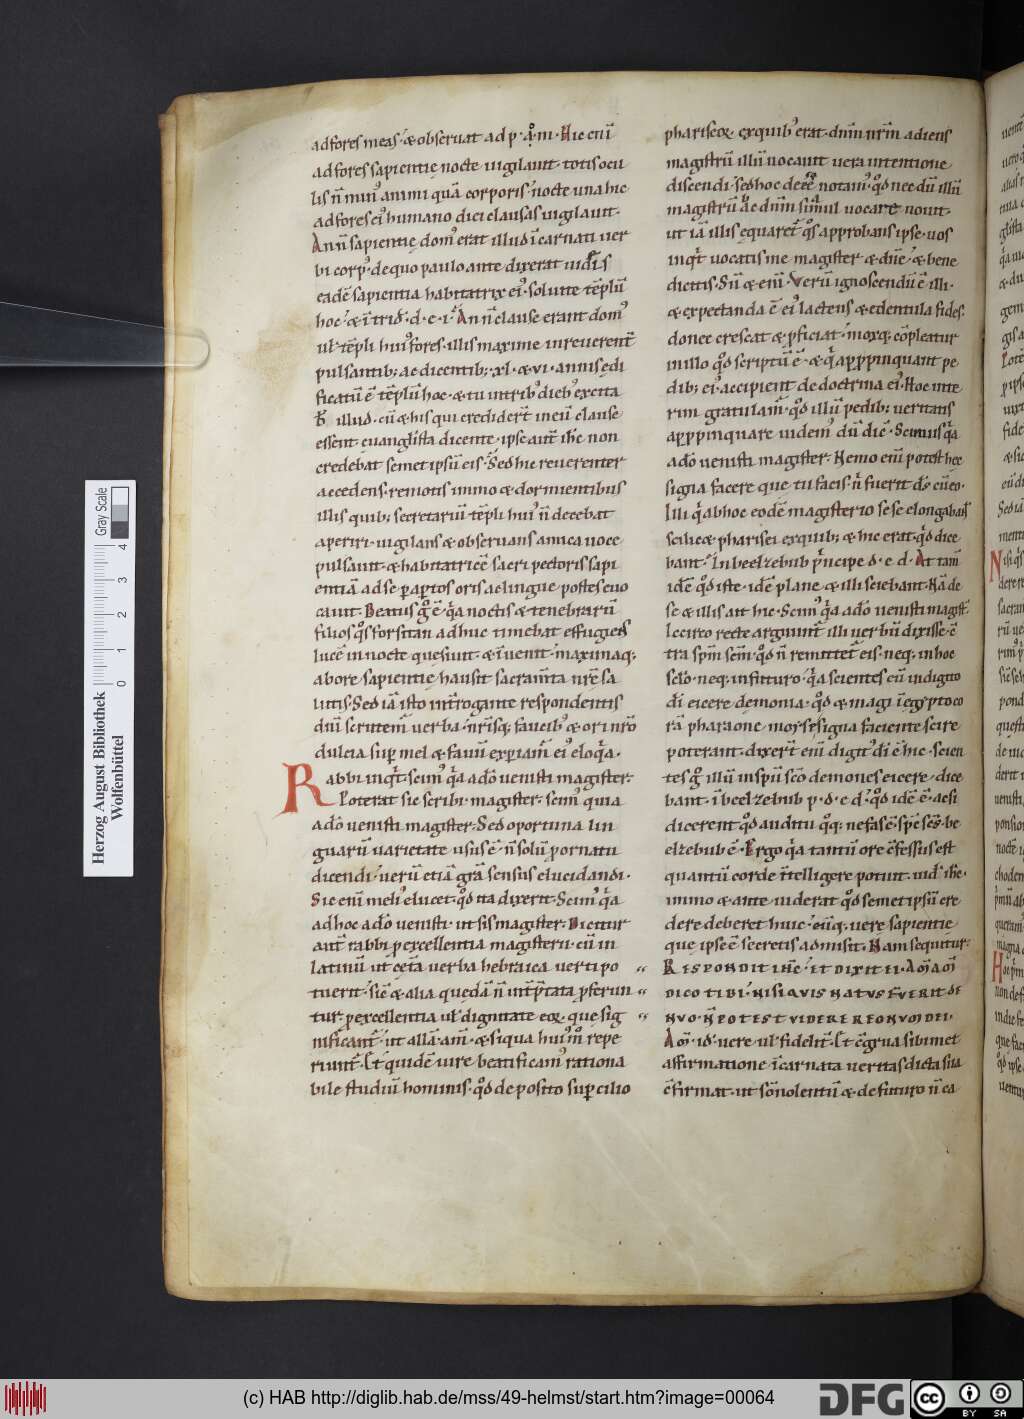 adfores meas · & obseruat ad p · a͛ · m · Hic eni̅
adfores sapientię nocte uigilauit totis ocu
lis n̅ min᾽ animi qua̅ corporis · nocte una hic
adfores ei᾽ humano dici clausas uigilauit ·
An n̅ sapientię dom᾽ erat illud i̅carnati uer
bi corp᾽ · de quo paulo ante dixerat iudęis
eade̅ sapientia habitatrix ei᾽ · soluite te̅plu̅
hoc · & i̅ trid᾽ · d · e · i · An n̅ clause erant dom᾽
ul̅ te̅pli hui᾽ fores · illis maxime inreuerent̅
pulsantib; ac dicentib; · xl · & vi · annis edi
ficatu̅ e̅ te̅plu̅ hoc · & tu intrib᾽ dieb᾽ excita
illud · cu̅ & his qui credidert̅ in eu̅ clause
essent · euanglista dicente · ipse aut̅ ih̅c non
credebat semet ipsu̅ eis · Sed hic reuerenter
accedens · remotis immo & dormientibus
illis quib; secretariu̅ te̅pli hui᾽ n̅ decebat
aperiri · uigilans & obseruans amica uoce
pulsauit · & habitatrice̅ sacri pectoris sapi
entia̅ ad se p apertos oris ac lingue postes euo
cauit · Beatus g̊ e̅ · q̅a noctis & tenebraru̅
filios q̊s forsitan adhuc timebat effugiens
luce̅ in nocte quesiuit · & i̅uenit · maximaq;
ab ore sapientie hausit sacram̅ta nr̅e sa
lutis · Sed ia̅ isto int̅rogante respondentis
dn̅i scrutem᾽ uerba · nr̅isq; faucib᾽ & ori nr̅o
dulcia sup mel & fauu̅ expiam᾽ ei᾽ eloq̅a ·
Rabbi inq̅t · scim᾽ q̅a a do̅ uenisti magister ·
Poterat sic scribi · magister · scim᾽ quia
a do̅ uenisti magister · Sed oportuna lin
guaru̅ uarietate usus e̅ · n̅ solu̅ p ornatu
dicendi · ueru̅ etia̅ gra̅ sensus elucidandi ·
Sic eni̅ meli᾽ elucet q̊d ita dixerit · Scim᾽ q̅a
ad hoc a do̅ uenisti · ut sis magister · Dicitur
aut̅ rabbi p excellentia magisterii · cu̅ in
latinu̅ ut cet̅a uerba hebraica uerti po
tuerit · sic̅ & alia queda̅ n̅ int̅p̅tata p̅ferun
tur p excellentia ul̅ dignitate eoꝝ que sig
nificant̅ · ut alla̅ · am̅ · & siqua hui᾽m̊ repe
riunt̅ · Et quide̅ iure beatificam᾽ rationa
bile studiu̅ hominis · q̊d de posito sup cilio
phariseoꝝ ex quib᾽ erat · dn̅m nr̅m adiens
magistru̅ illu̅ uocauit uera intentione
discendi · sed hoc de eo̅ notam᾽ · q̊d nec du̅ illu̅
magistru̅ ac dn̅m simul uocare nouit ·
ut ia̅ illis equaret᾽ q̊s approbans ipse · uos
inq̅t uocatis me magister & dn̅e · & bene
dicitis · Su̅ & eni̅ · Veru̅ ignoscendu̅ e̅ illi ·
& expectanda e̅ ei᾽ lactens & edentula fides ·
donec crescat & p̅ficiat · moxq; co̅pleatur
in illo q̊d scriptu̅ e̅ · & q̅ app̅pinquant pe
dib; ei᾽ · accipient de doctrina ei᾽ · Hoc inte
rim gratulam᾽ · q̊d illu̅ pedib; ueritatis
app̅pinquare uidem᾽ du̅ dic̅ · Scimus q̅a
a do̅ uenisti magister · Nemo eni̅ potest hec
signa facere que tu facis · n̅ fuerit ds̅ cu̅ eo ·
Illi q̅ ab hoc eode̅ magisterio sese elongabant
scilic& pharisei ex quib; & hic erat · q̊d dice
bant · In beelzebub p̅ncipe d · e · d · At tam̅
ide̅ q̊d iste · ide̅ plane & illi sciebant · Na̅ de
se & illis ait hic · Scim᾽ q̅a a do̅ uenisti magist̅ ·
Iccirco recte arguunt̅ illi uerbu̅ dixisse c̅
tra sp̅m sc̅m · q̊d n̅ remittet̅ eis · neq; in hoc
sclo̅ · neq; in futuro · q̅a scientes eu̅ in digito
di̅ eicere demonia · q̊d & magi i̅ egypto co
ra̅ pharaone moyse signa faciente scire
poterant · dixert̅ eni̅ digit᾽ di̅ e̅ hic · scien
tes g̊ illu̅ in sp̅u sc̅o demones eicere · dice
bant · i̅ beelzebub p · d · e · d · q̊d ide̅ e̅ · ac si
dicerent q̊d auditu q̊q; nefas e̅ sp̅c sc̅s · be
elzebub e̅ · Ergo q̅a tantu̅ ore c̅fessus est
quantu̅ corde i̅telligere potuit · uid᾽ ih̅c ·
immo & ante uiderat q̊d semet ipsu̅ cre
dere deberet huic · cuiq; uere sapientie
que ipse e̅ secretis admisit · Nam sequitur ·
RESPONDIT IH̅C · ET DIXIT EI · AM̅ AM̅
DICO TIBI · NISI QVIS NATVS FVERIT DE
NVO · N̅ POTEST VIDERE REGNVM DEI ·
Am̅ · id᾽ · uere ul̅ fidelit̅ · Et c̅grua sibimet
affirmatione i̅carnata ueritas dicta sua
c̅firmat · ut so̅nolentu̅ & de futuro n̅ ca
Herzog August Bibliothek
Wolfenbüttel
Gray Scale
0 1 2 3 4
(c) HAB http://diglib.hab.de/mss/49-helmst/start.htm?image=00064
DFG
cc BY SA